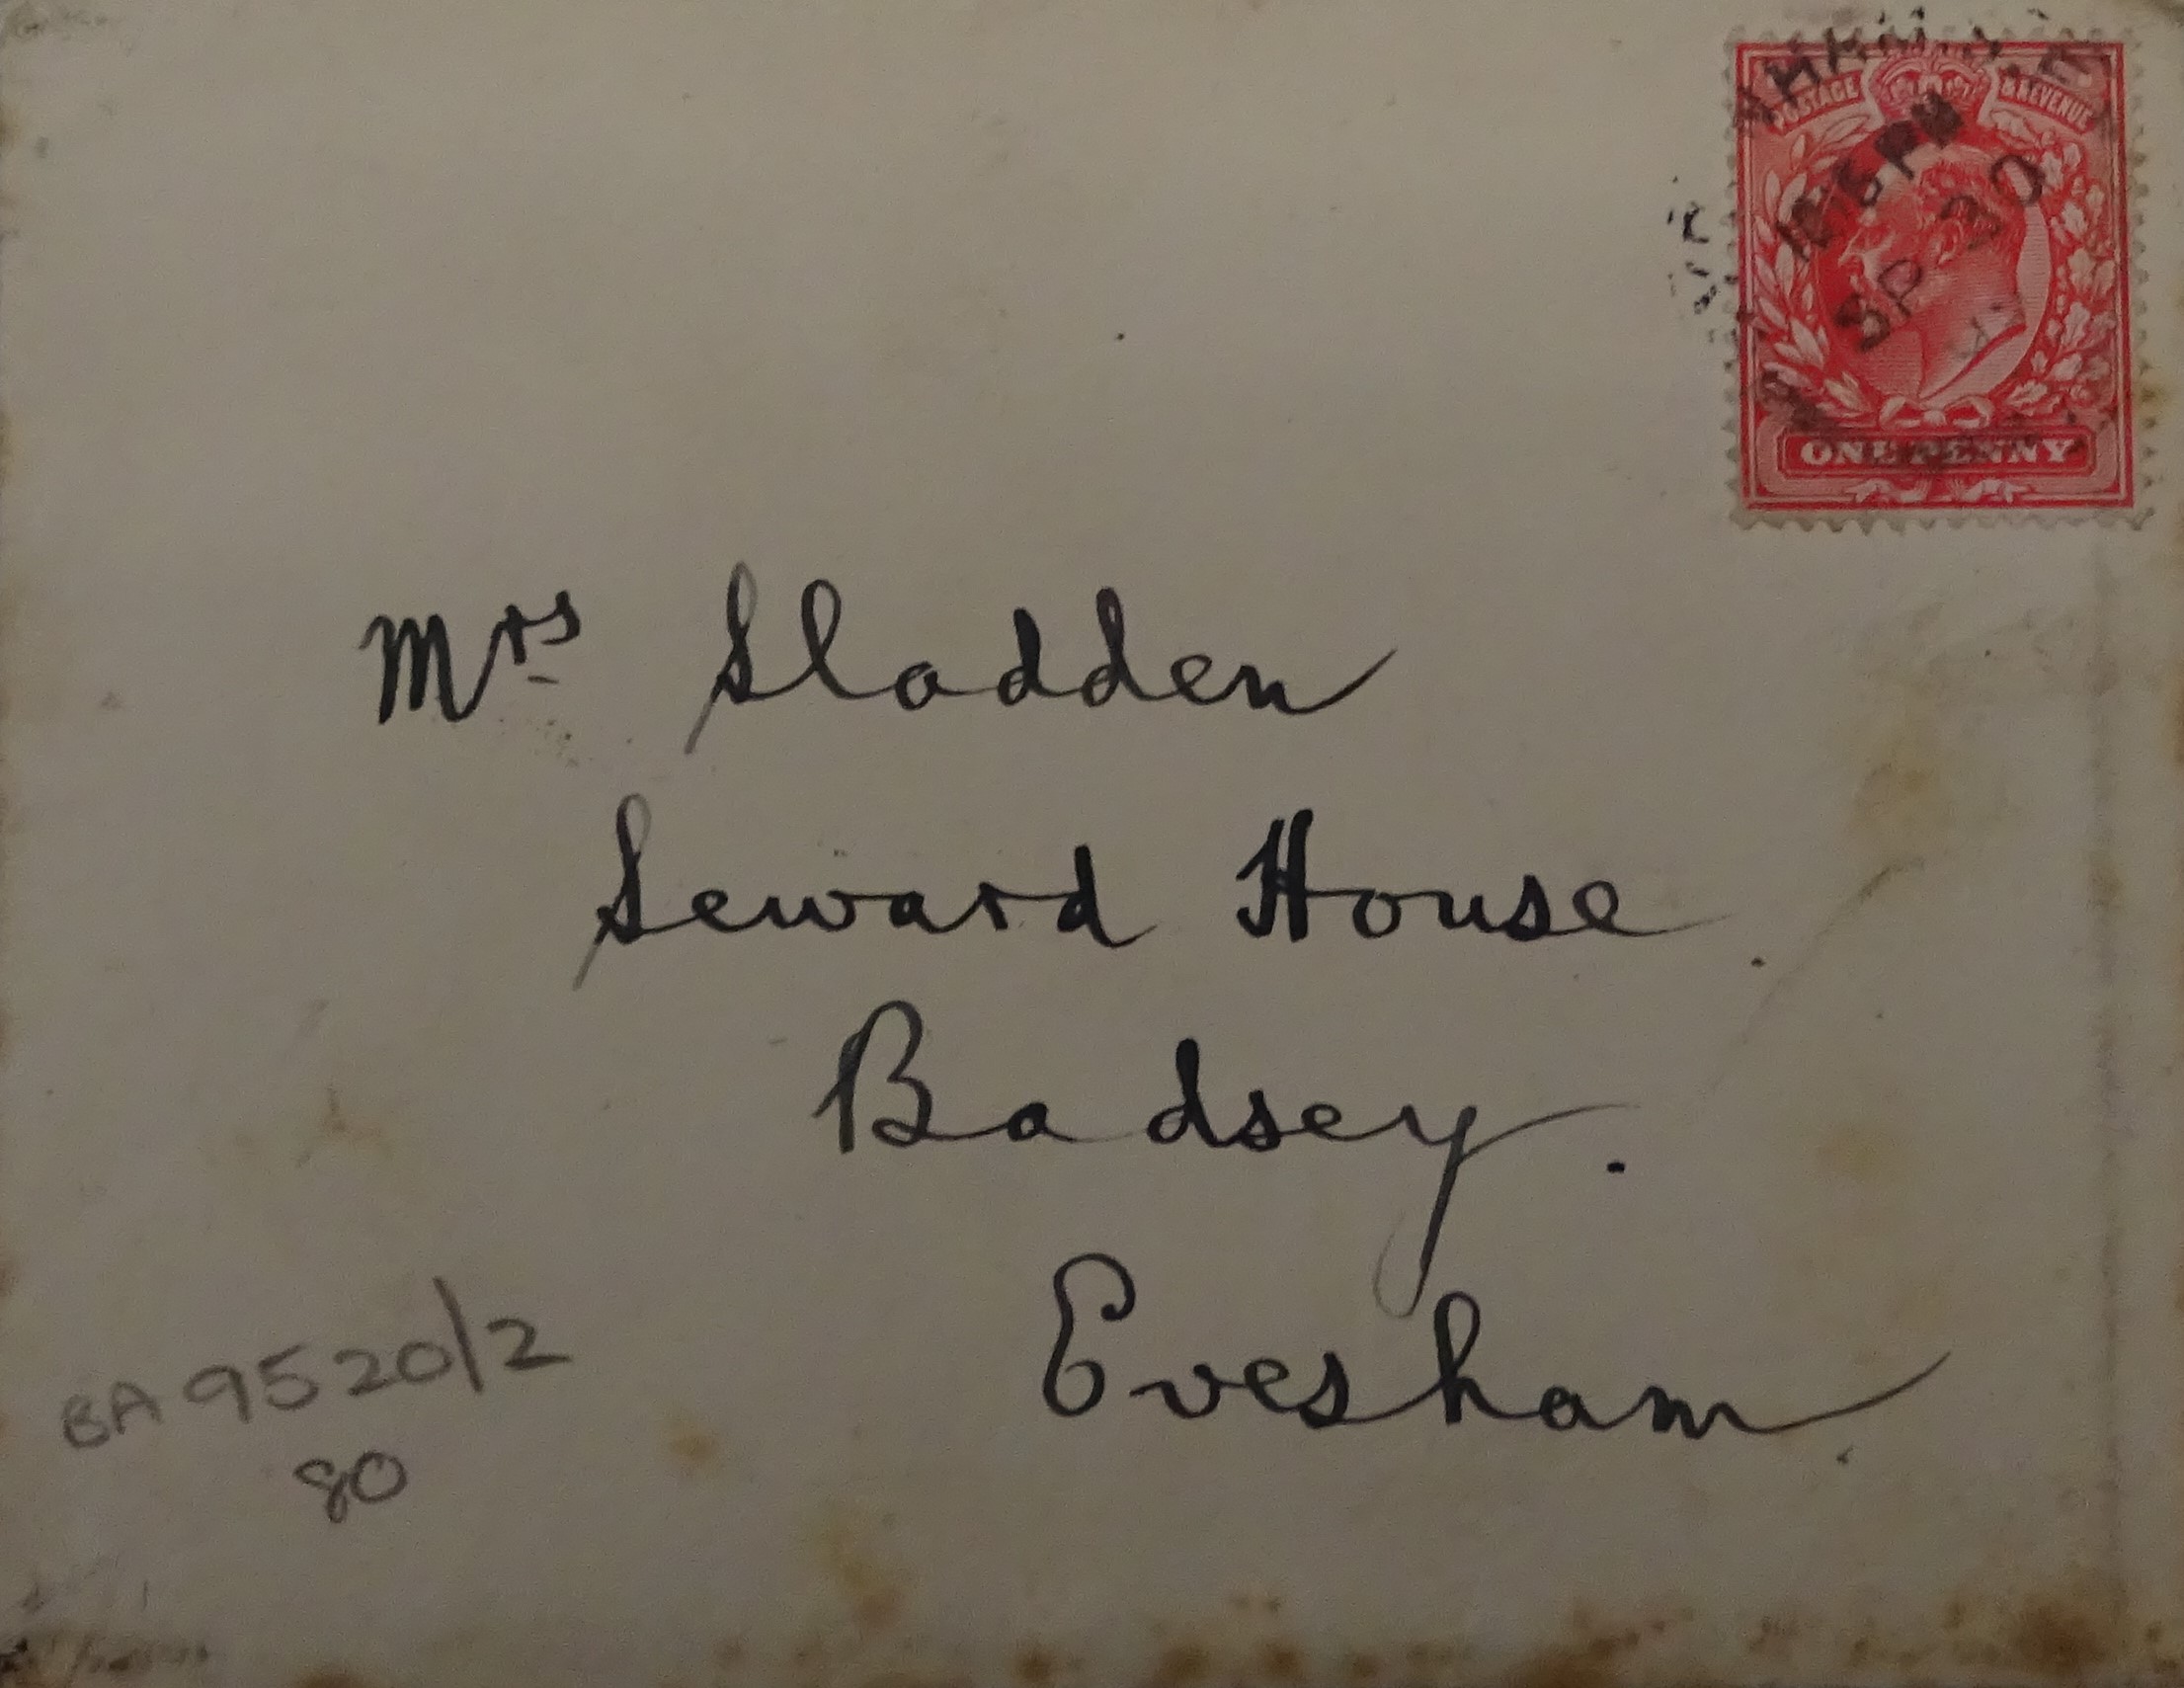 POSTAGE & REVENUE
SP 30
ONE PENNY
Mrs Sladden
Seward House.
Badsey.
Evesham.
BA 9520/2
80